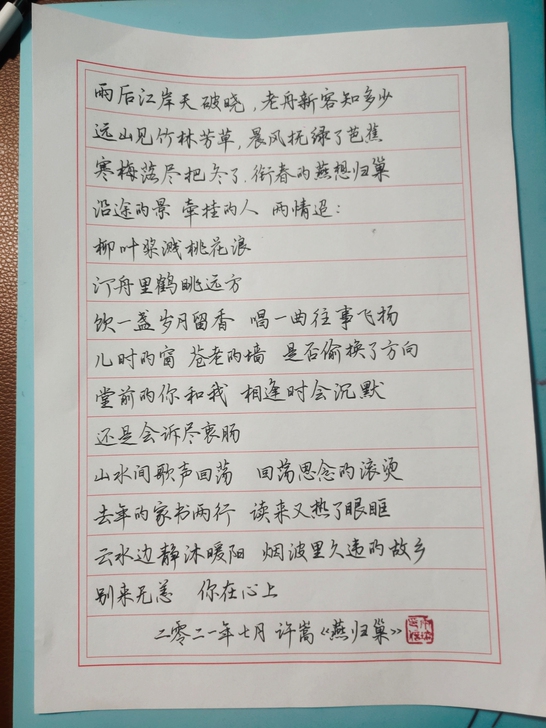 雨后江岸天破晓，老舟新客知多少
远山见竹林芳草，晨风抚绿了芭蕉
寒梅落尽把冬了，衔春的燕想归巢
沿途的景 牵挂的人 两情迢：
柳叶桨溅桃花浪
汀舟里鹤眺远方
饮一盏岁月留香 唱一曲往事飞扬
儿时的窗 苍老的墙 是否偷换了方向
堂前的你和我 相逢时会沉默
还是会诉尽衷肠
山水间歌声回荡 回荡思念的滚烫
去年的家书两行 读来又热了眼眶
云水边静沐暖阳 烟波里久违的故乡
别来无恙 你在心上
二零二一年七月 许嵩《燕归巢》